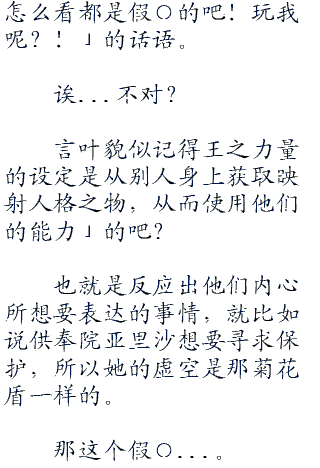 怎么看都是假○的吧！玩我
呢？！」的话语。
诶...不对？
言叶貌似记得王之力量
的设定是从别人身上获取映
射人格之物，从而使用他们
的能力」的吧？
也就是反应出他们内心
所想要表达的事情，就比如
说供奉院亚里沙想要寻求保
护，所以她的虚空是那菊花
盾一样的。
那这个假○...。